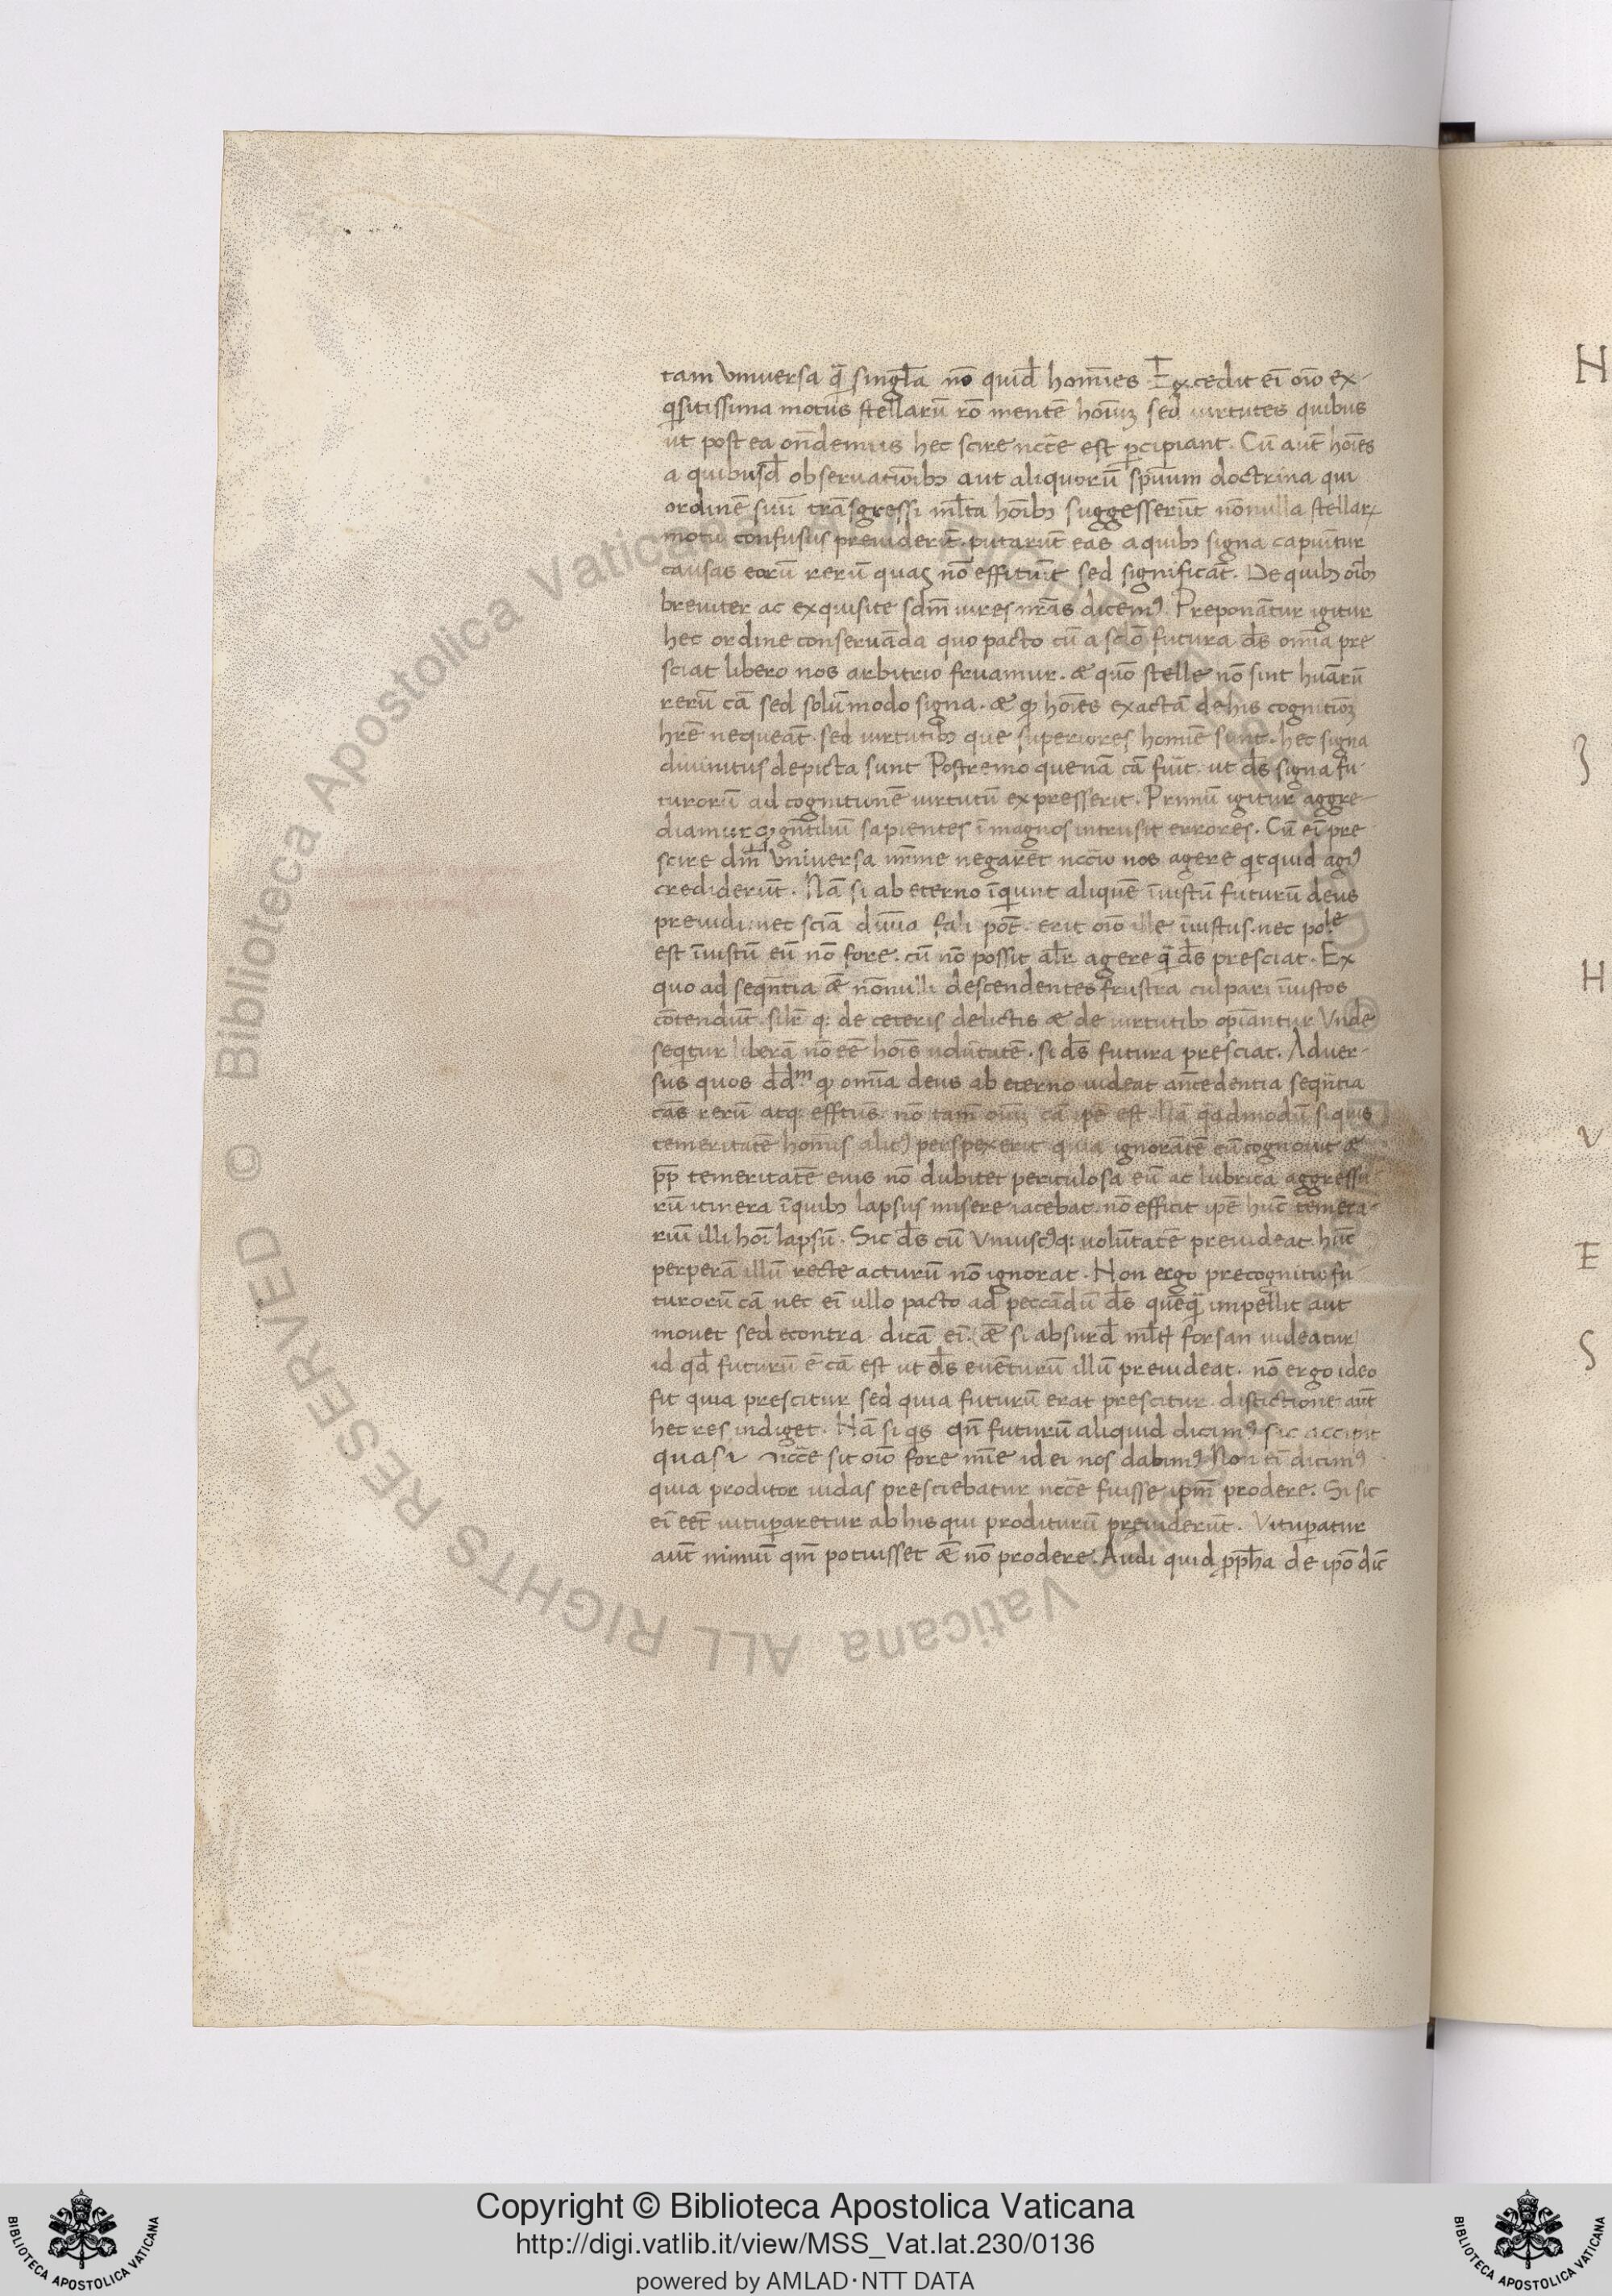 tam Vniuersa q̄ singl̄a nō quid̄ homīes. Excedit eī oīo ex-
q̇sitissima motus stellarū rō mentē hoīuꝫ sed uirtutes quibus
ut post ea on̄demus hec scire ncc̄e est ꝑcipiant. Cū aut̄ hoīes
a quibusd̄ obseruatiōibꝫ aut aliquorū spūum doctrina qui
ordinē suū trāsgressi ml̄ta hoībꝫ suggesserūt nōnulla stellaꝝ
motu confusius preuiderīt. putarūt eas a quibꝫ signa capiūtur
causas eorū rerū quas nō effitiūt sed significāt. De quibꝫ oībꝫ
breuiter ac exquisite sdm̄ uires nr̄as dicemꝰ. Preponātur igitur
hec ordine conseruāda quo pacto cū a sclo futura ds̄ omīa pre
sciat libero nos arbitrio fruamur. æ quō stelle nō sint huāarū
rerū cā sed solū modo signa. æ ꝙ hoīes exactā de his cognitiōꝫ
hr̄e nequeāt. sed uirtutibꝫ que superiores homīe sunt. hec signa
diuinitus depicta sunt Postremo que nā cā fuīt. ut ds̄ signa fu-
turorū ad cognitionē uirtutū expresserit. Primū igitur aggre-
diamur ꝙ gn̄tiliū sapientes ī magnos intrusit errores. Cū eī pre
scire dm̄ Vniuersa mīme negarēt ncc̄io nos agere q̇cquid agiꝰ
crediderūt. Nā si ab eterno īqiunt aliquē īiustū futurū deus
preuidit nec sciā diuīa fali pōt. erit oīo ille īiustus. nec pole
est īiustū eū nō fore. cū nō possit alr̄ agere q̄ ds̄ presciat. Ex
quo ad seqn̄tia ǣ nōnulli descendentes frustra culpari īiustos
cōtendūt. silr̄ q: de ceteris delictis æ de uirtutibꝫ opīantur Vnde
seqtur liberā nō eē hoīs uolūtatē. si ds̄ futura presciat. Aduer-
sus quos dd̄ᵐ ꝙ omīa deus ab eterno uideat an̄cedentia seqn̄tia
cās rerū atq: efftus. nō tam̄ oīuꝫ cā ipē est. Nā q̄admodū si quis
temeritatē homīs alicꝰ perspexerit quia ignorātē eū cognouit æ
pp̄ temeritatē eius nō dubitet periculosa eū ac lubrica aggressu
rū itinera ī quibꝫ lapsus misere iacebat. nō efficit ipē huc̄ temera-
riū illi hoī lapsū. Sic ds̄ cū Vniuscꝰq: uolūtatē preuideat. hūc
perperā illū recte acturū nō ignorat. Non ergo precognitio fu-
turorū cā nec eī ullo pacto ad peccādū ds̄ quēq̄ impellit aut
mouet sed econtra. dicā eī. (ǣ si absurd̄ ml̄t forsan uideatur)
id qd̄ futurū ē cā est ut ds̄ euēturū illū preuideat. nō ergo ideo
fit quia prescitur sed quia futurū erat prescitur. distīctione aut̄
hec res indiget. Nā si q̇s qn̄ futurū aliquid dicimꝰ sic accipit
quasi ncc̄e sit oīo fore mīe id ei nos dabimꝰ Non eī dicimꝰ
quia proditor iudas presciebatur ncc̄e fuisse ipm̄ prodere. Si sic
eī eet̄ uituparetur ab his qui proditurū preuiderūt. Vitupatur
aut̄ nimiū qm̄ potuisset ǣ nō prodere. Audi quid pp̄ha de ipō dic̄
H
3
H
V
E
S
Copyright © Biblioteca Apostolica Vaticana
http://digi.vatlib.it/view/MSS_Vat.lat.230/0136
powered by AMLAD·NTT DATA
BIBLIOTECA APOSTOLICA VATICANA
BIBLIOTECA APOSTOLICA VATICANA
© Biblioteca Apostolica Vaticana ALL RIGHTS RESERVED